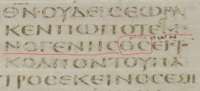 ΘΝΟΥΔΕΙCΕΩΡΑ
ΚΕΝΠΩΠΟΤΕ
ΝΟΓΕΝΗCΘCΕΙ
ΚΟΛΠΟΝΤΟΥΠΑ
ΤΡΟCΕΚΕΙΝΟCΕΞΗ